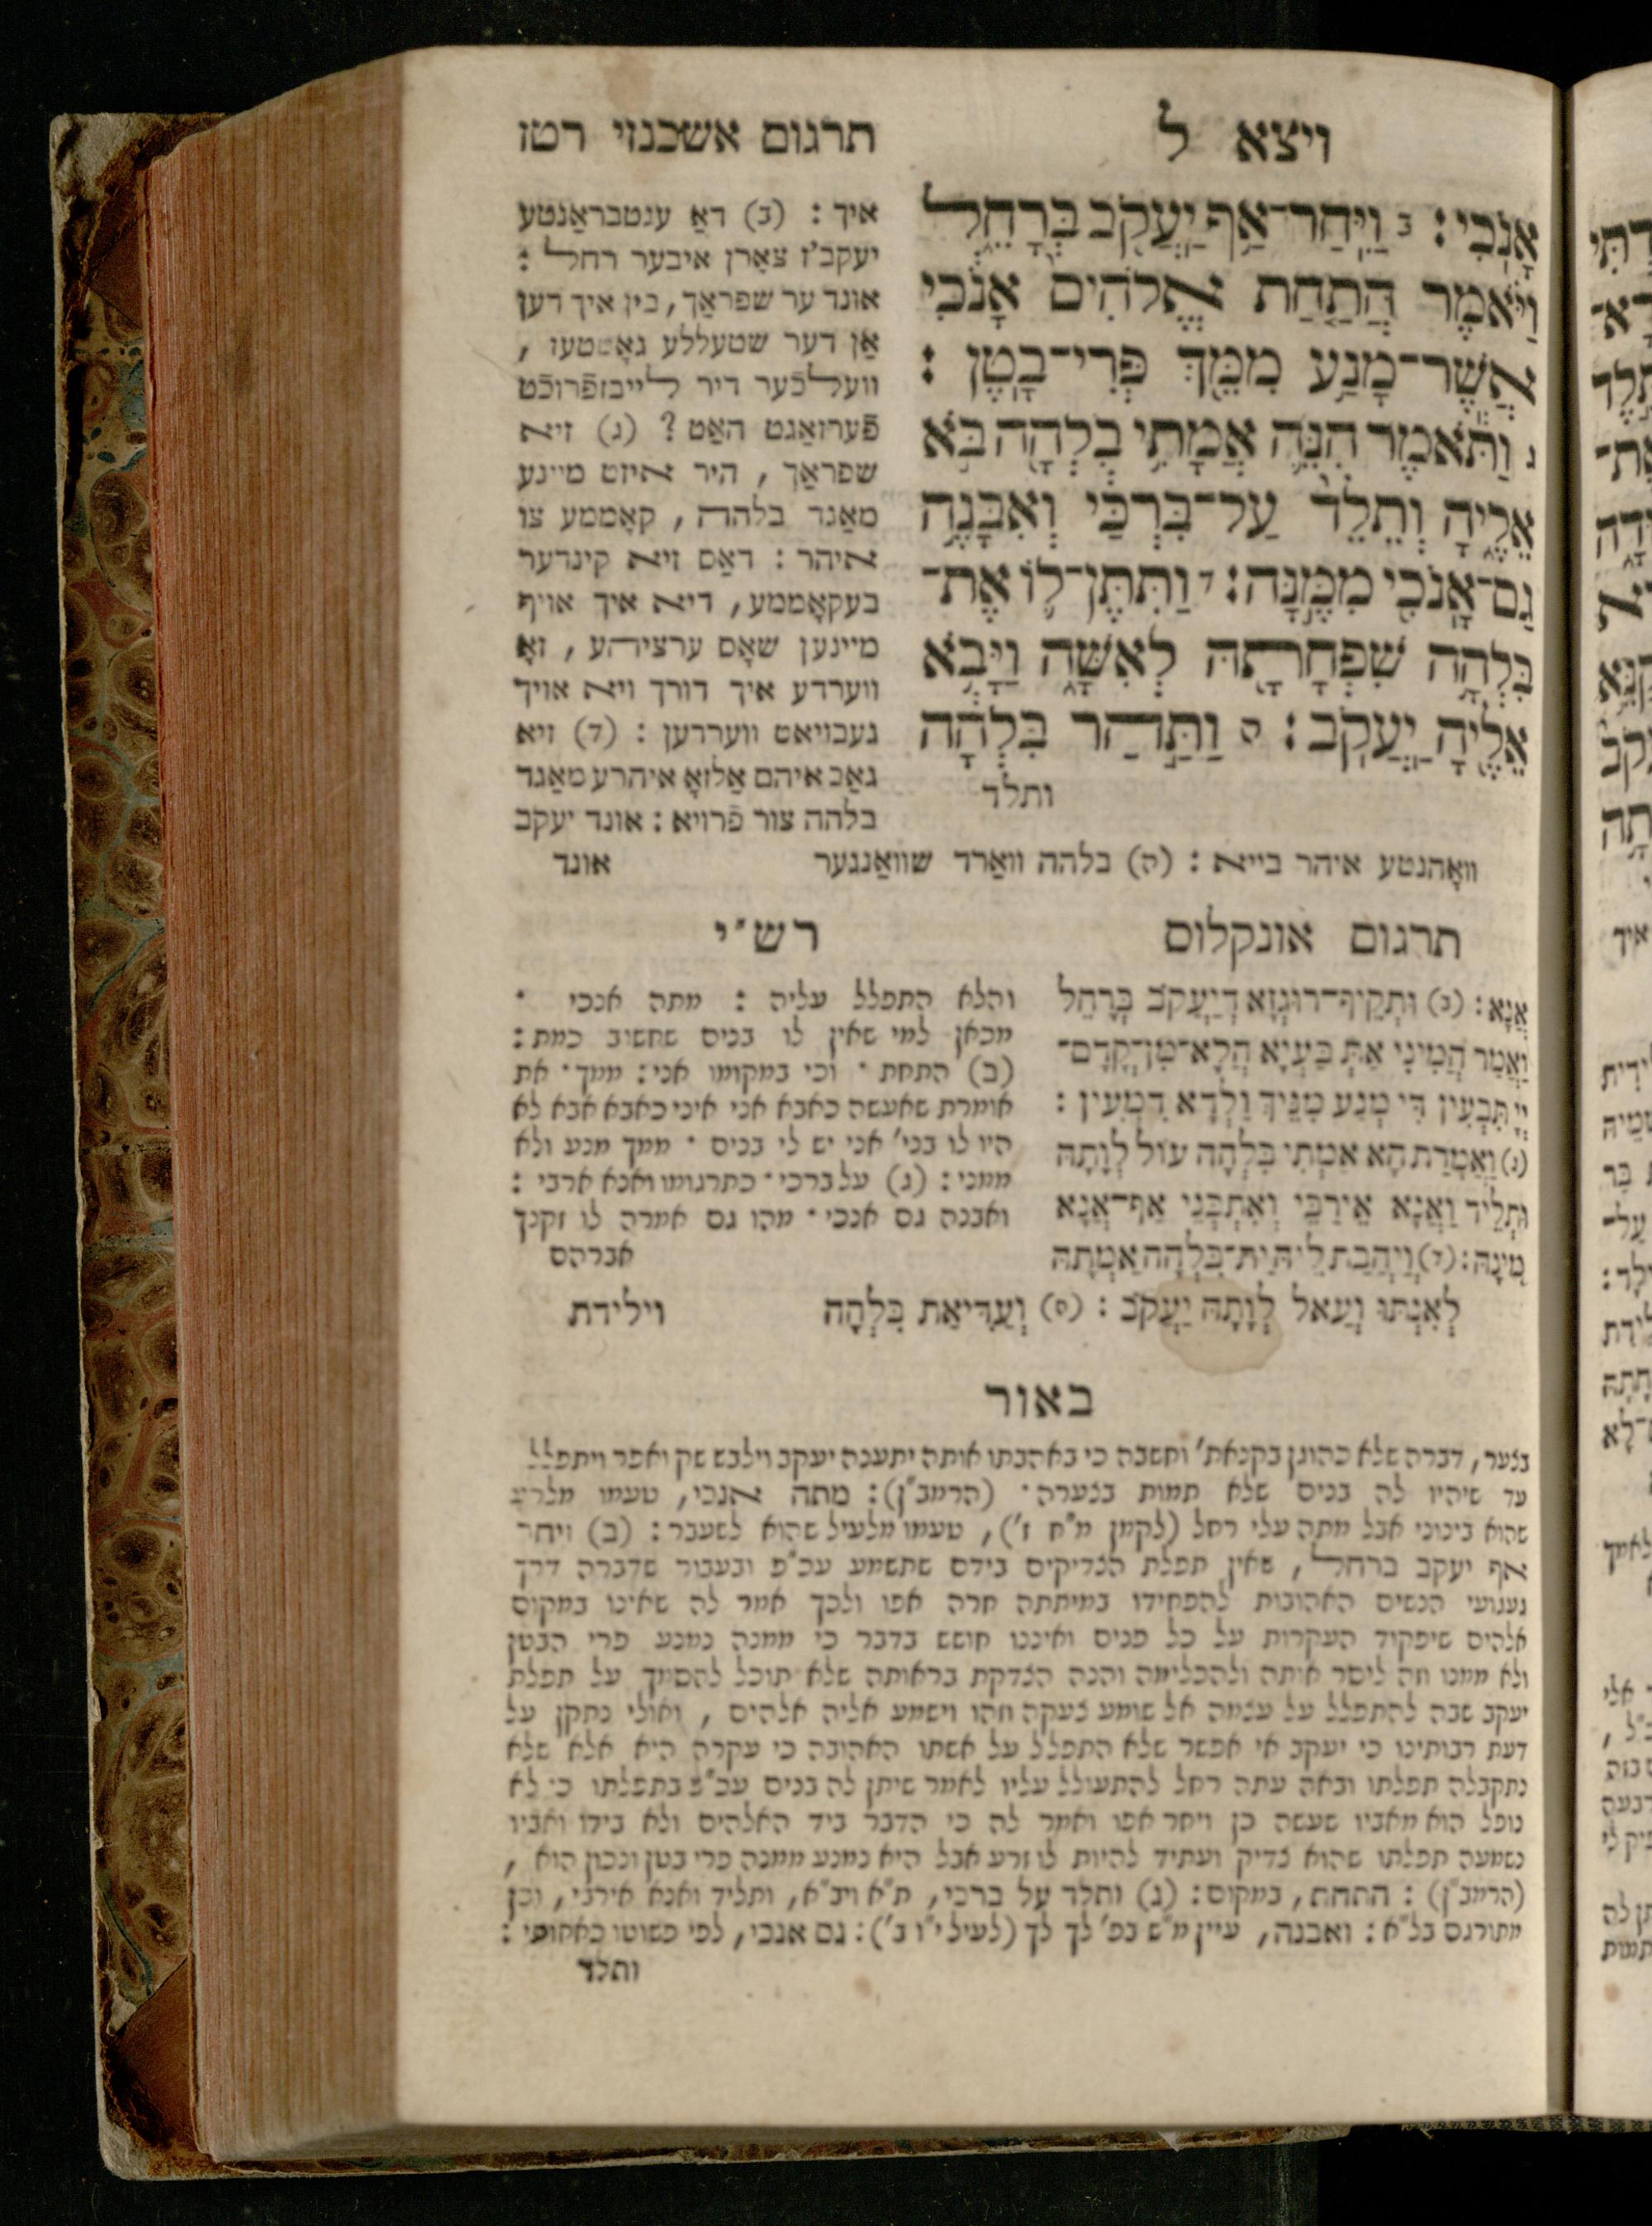 ויצא ל
תרגום אשכנזי רטז
אָנֹכִי׃ ב וַיִּחַר־אַף יַעֲקֹב בְּרָחֵל
וַיֹּאמֶר הֲתַחַת אֱלֹהִים אָנֹכִי
אֲשֶׁר־מָנַע מִמֵּךְ פְּרִי־בָטֶן׃
ג וַתֹּאמֶר הִנֵּה אֲמָתִי בִלְהָה בֹּא
אֵלֶיהָ וְתֵלֵד עַל־בִּרְכַּי וְאִבָּנֶה
גַם־אָנֹכִי מִמֶּנָּה׃ ד וַתִּתֶּן־לוֹ אֶת־
בִּלְהָה שִׁפְחָתָהּ לְאִשָּׁה וַיָּבֹא
אֵלֶיהָ יַעֲקֹב׃ ה וַתַּהַר בִּלְהָה
ותלד
איך : (ב) דאַ ענטבראַנטע
יעקב'ז צאָרן איבער רחל :
אונד ער שפראַך, בין איך דען
אַן דער שטעללע גאָטטעז ,
וועלכֿער דיר לייבזפֿרוכֿט
פֿערזאַגט האַט? (ג) זיא
שפראַך , היר איזט מיינע
מאַגד בלהה, קאָממע צו
איהר : דאַס זיא קינדער
בעקאָממע, דיא איך אויף
מיינען שאָס ערציהע, זאָ
ווערדע איך דורך זיא אויך
געבויאט ווערדען : (ד) זיא
גאַב איהם אַלזאָ איהרע מאַגד
בלהה צור פֿרויא : אונד יעקב
וואָהנטע איהר בייא : (ה) בלהה וואַרד שוואַנגער אונד
תרגום אונקלוס
אֲנָא : (ב) וּתְקֵיף־רוּגְזָא דְיַעֲקֹב בְּרָחֵל
וַאֲמַר הֲמִינִי אַתְּ בַּעְיָא הֲלָא־מִן־קֳדָם־
יְיָ תִּבְעִין דִּי מְנַע מִנֵּיךְ וַלְדָא דִמְעִין :
(ג) וַאֲמָרַת הָא אַמְתִי בִּלְהָה עוֹל לְוָתָהּ
וּתְלֵיד וַאֲנָא אֵירַבֵּי וְאִתְבְּנֵי אַף־אֲנָא
מִינָהּ : (ד) וִיהֲבַת לֵיהּ יַת־בִּלְהָה אַמְתָהּ
לְאִנְתּוּ וְעָאל לְוָתָהּ יַעֲקֹב : (ה) וְעַדִּיאַת בִּלְהָה וילידת
רש״י
והלא התפלל עליה : מתה אנכי ·
מכאן למי שאין לו בנים שחשוב כמת :
(ב) התחת · וכי במקומו אני : ממך · את
אומרת שאעשה כאבא אני איני כאבא אבא לא
היו לו בני' אני יש לי בנים · ממך מנע ולא
ממני : (ג) על ברכי · כתרגומו ואנא ארבי :
ואבנה גם אנכי · מהו גם אמרה לו זקנך
אברהם
באור
בצער, דברה שלא כהוגן בקנאת' וחשבה כי באהבתו אותה יתענה יעקב וילבש שק ואפר ויתפלל
עד שיהיו לה בנים שלא תמות בצערה · (הרמב"ן) : מתה אנכי, טעמו מלרע
שהוא בינוני אבל מתה עלי רחל (לקמן מ"ח ז'), טעמו מלעיל שהוא לשעבר : (ב) ויחר
אף יעקב ברחל, שאין תפלת הצדיקים בידם שתשמע עכ"פ ובעבור שדברה דרך
געגועי הנשים האהובות להפחידו במיתתה חרה אפו ולכך אמר לה שאינו במקום
אלהים שיפקוד העקרות על כל פנים ואיננו חושש בדבר כי ממנה נמנע פרי הבטן
ולא ממנו וזה ליסר אותה ולהכלימה והנה הצדקת בראותה שלא תוכל להסמך על תפלת
יעקב שבה להתפלל על עצמה אל שומע צעקה וזהו וישמע אליה אלהים , ואולי נתקן על
דעת רבותינו כי יעקב אי אפשר שלא התפלל על אשתו האהובה כי עקרה היא אלא שלא
נתקבלה תפלתו ובאה עתה רחל להתעולל עליו לאמר שיתן לה בנים עכ"פ בתפלתו כי לא
נופל הוא מאביו שעשה כן ויחר אפו ואמר לה כי הדבר ביד האלהים ולא בידו ואביו
נשמעה תפלתו שהוא צדיק ועתיד להיות לו זרע אבל היא נמנע ממנה פרי בטן ונכון הוא ,
(הרמב"ן) : התחת, במקום : (ג) ותלד על ברכי, ת"א ויב"א, ותליד ואנא אירבי, וכן
מתורגם בל"א : ואבנה, עיין מ"ש בפ' לך לך (לעיל י"ו ב') : גם אנכי, לפי פשוטו כאחותי :
ותלד